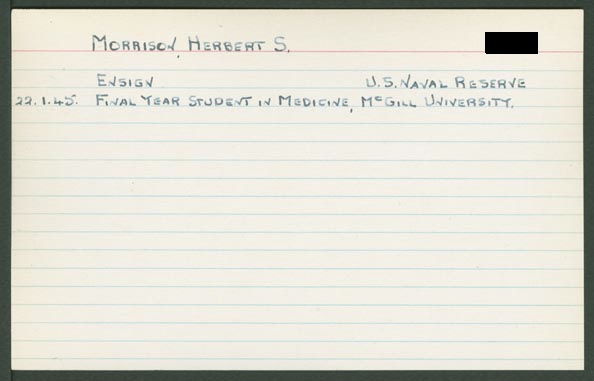 MORRISON, HERBERT S.
ENSIGN U.S. NAVAL RESERVE
22.1.45. FINAL YEAR STUDENT IN MEDICINE, McGILL UNIVERSITY.